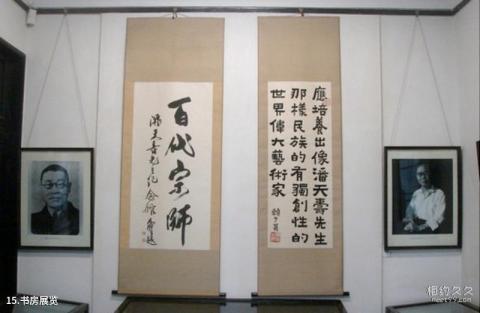 百代宗師
潘天壽先生纪念館
應培養出像潘天壽先生
那樣民族的有獨創性的
世界偉大藝術家
15.书房展览
相约久久
meet99.com